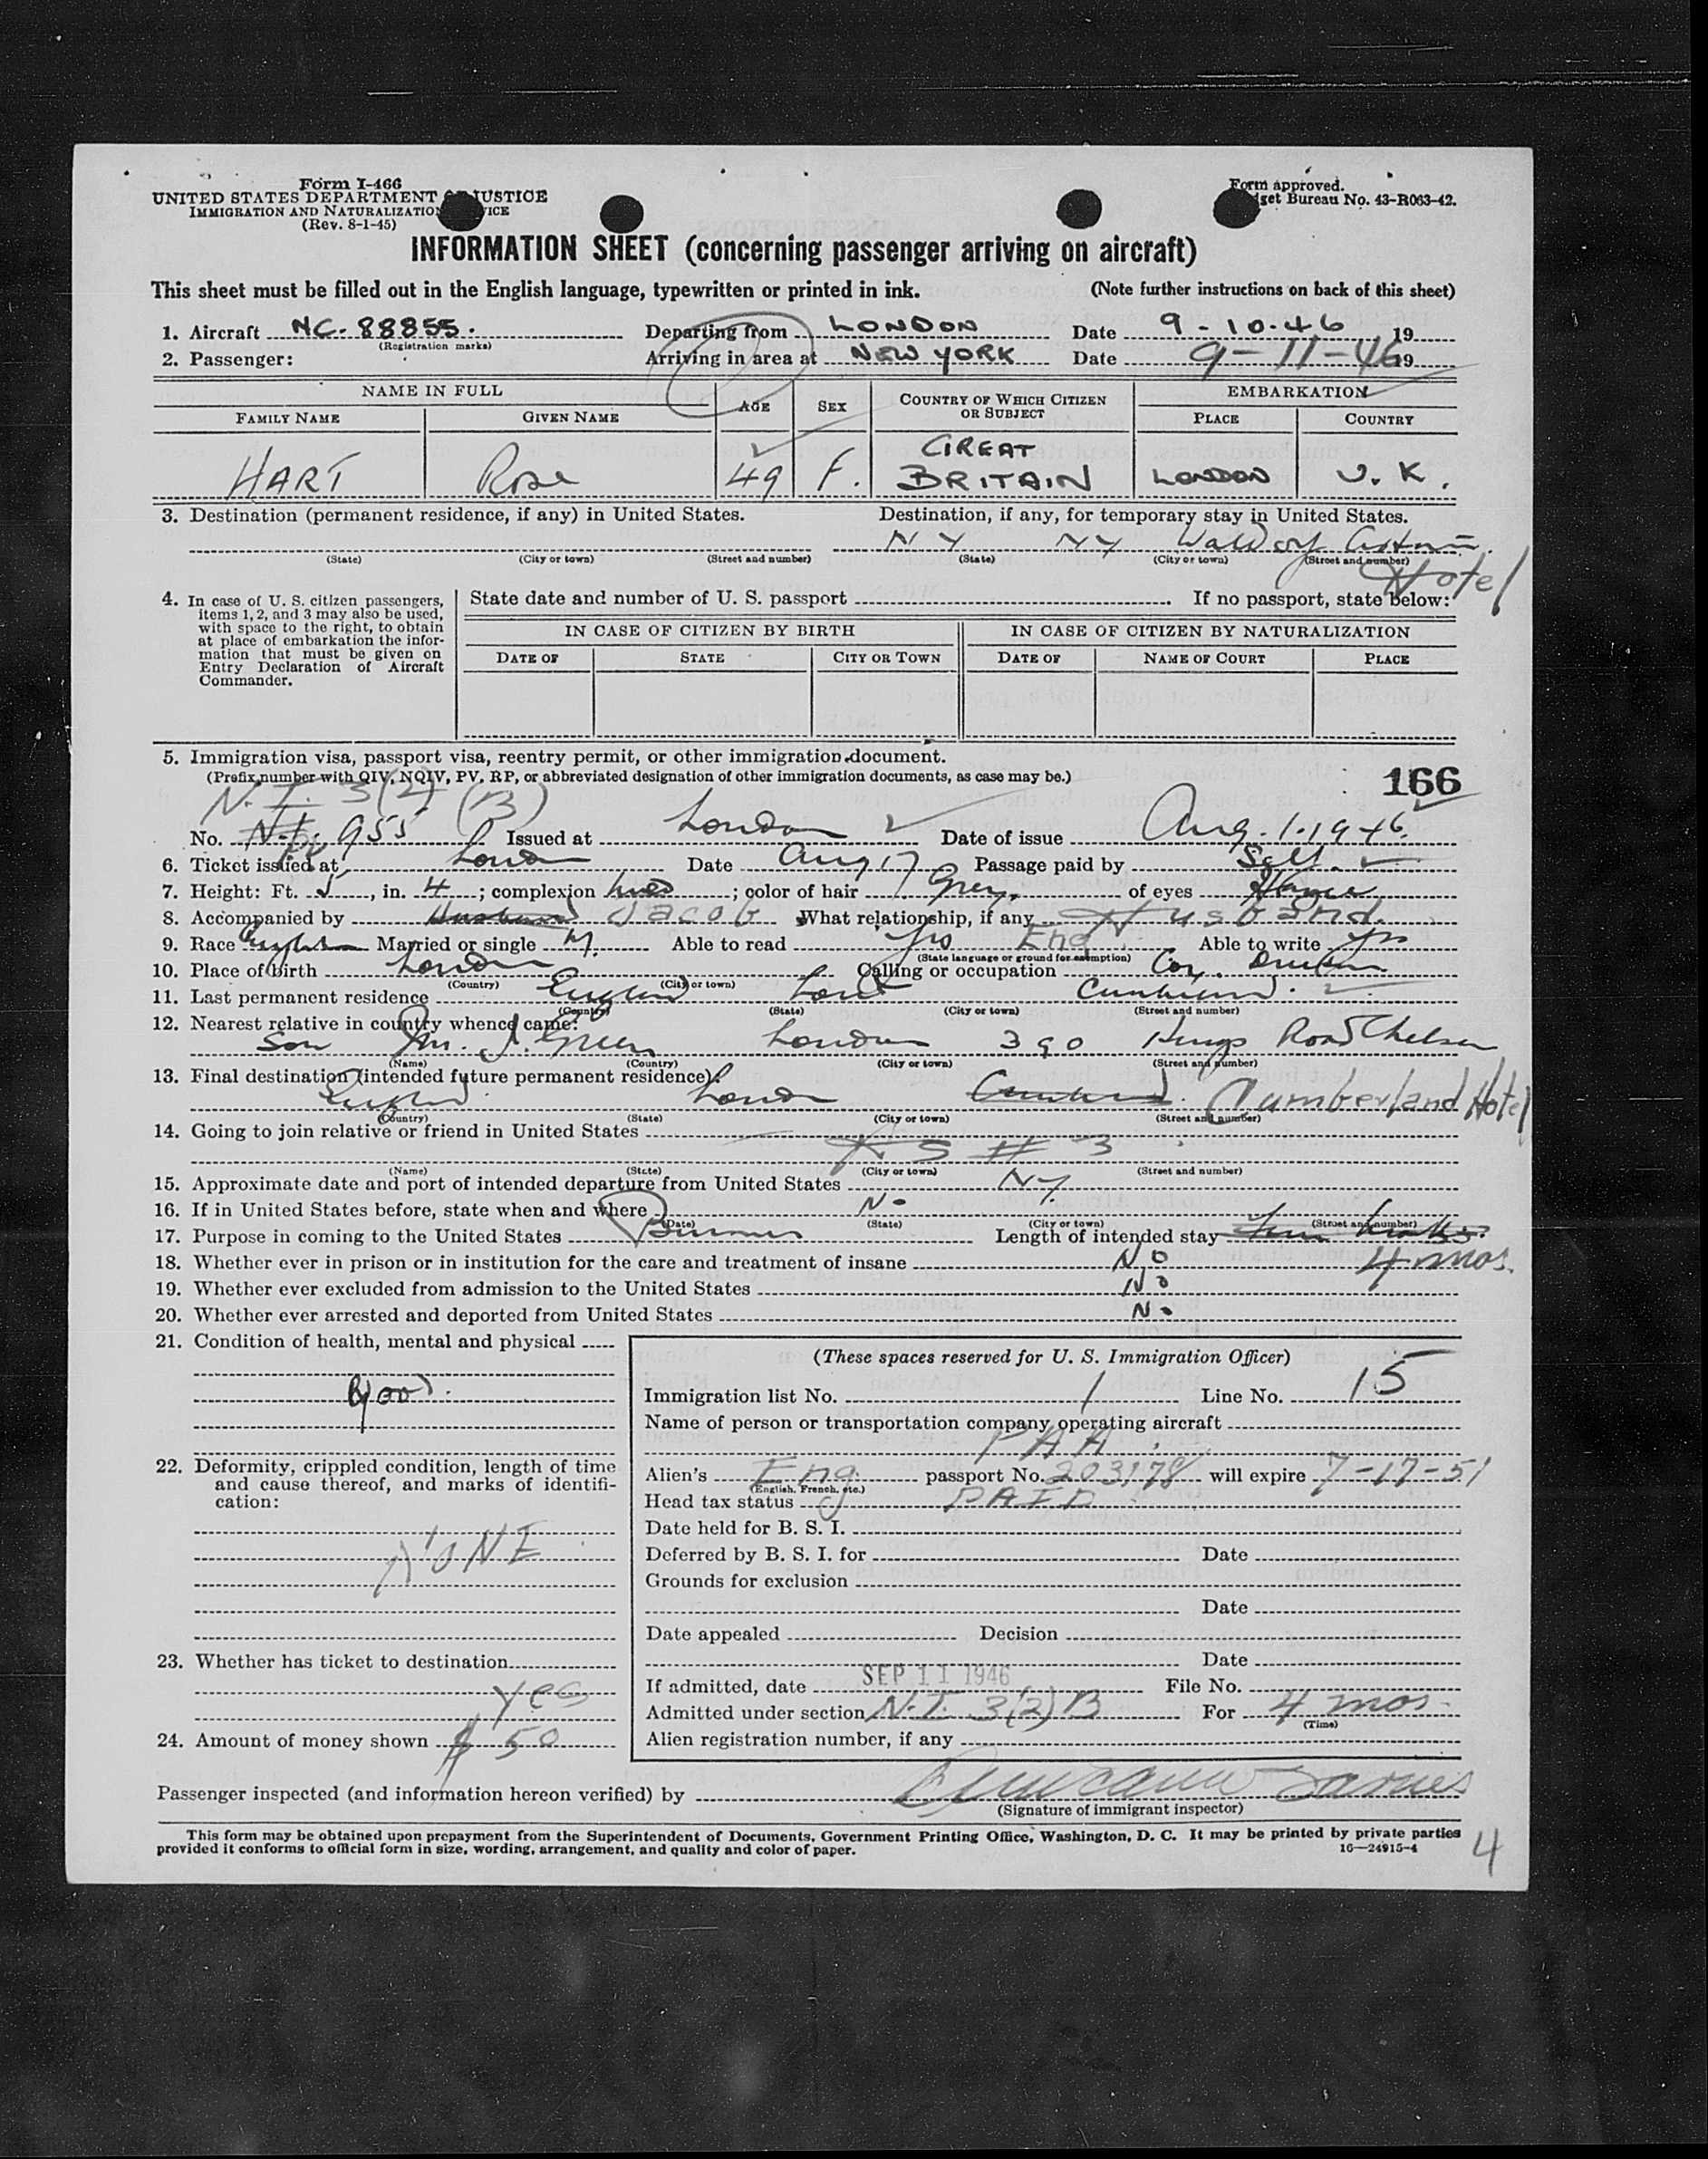 Form I-466
UNITED STATES DEPARTMENT OF JUSTICE
IMMIGRATION AND NATURALIZATION SERVICE
(Rev. 8-1-45)
Form approved.
Budget Bureau No. 43-R063-42.
INFORMATION SHEET (concerning passenger arriving on aircraft)
This sheet must be filled out in the English language, typewritten or printed in ink. (Note further instructions on back of this sheet)
1. Aircraft NC-88855. Departing from LONDON Date 9-10-46 19
(Registration marks)
2. Passenger: Arriving in area at NEW YORK Date 9-11-46 19
NAME IN FULL AGE SEX COUNTRY OF WHICH CITIZEN OR SUBJECT EMBARKATION
FAMILY NAME GIVEN NAME PLACE COUNTRY
HART Rose 49 F. GREAT BRITAIN LONDON U.K.
3. Destination (permanent residence, if any) in United States. Destination, if any, for temporary stay in United States.
NY NY Waldorf Astoria Hotel
(State) (City or town) (Street and number) (State) (City or town) (Street and number)
4. In case of U. S. citizen passengers, items 1, 2, and 3 may also be used, with space to the right, to obtain at place of embarkation the information that must be given on Entry Declaration of Aircraft Commander.
State date and number of U. S. passport . If no passport, state below:
IN CASE OF CITIZEN BY BIRTH IN CASE OF CITIZEN BY NATURALIZATION
DATE OF STATE CITY OR TOWN DATE OF NAME OF COURT PLACE
5. Immigration visa, passport visa, reentry permit, or other immigration document.
(Prefix number with QIV, NQIV, PV, RP, or abbreviated designation of other immigration documents, as case may be.)
166
N.I. 3(2)(B)
No. N.I. 955 Issued at London Date of issue Aug. 1. 1946.
6. Ticket issued at London Date Aug 17 Passage paid by Self.
7. Height: Ft. 5, in. 4; complexion ; color of hair Grey. of eyes
8. Accompanied by Husband Jacob What relationship, if any Husband.
9. Race English Married or single M. Able to read Yes Eng Able to write Yes
(State language or ground for exemption)
10. Place of birth London Calling or occupation
(Country) (City or town)
11. Last permanent residence England London Cumberland.
(Country) (State) (City or town) (Street and number)
12. Nearest relative in country whence came:
Son J. Green London 390 Kings Road Chelsea
(Name) (Country) (City or town) (Street and number)
13. Final destination (intended future permanent residence)
England London Cumberland. Cumberland Hotel
(Country) (State) (City or town) (Street and number)
14. Going to join relative or friend in United States
AS # 3
(Name) (State) (City or town) (Street and number)
15. Approximate date and port of intended departure from United States NY.
16. If in United States before, state when and where No
(Date) (State) (City or town) (Street and number)
17. Purpose in coming to the United States Business Length of intended stay
4 mos.
18. Whether ever in prison or in institution for the care and treatment of insane No
19. Whether ever excluded from admission to the United States No
20. Whether ever arrested and deported from United States No
21. Condition of health, mental and physical
Good.
22. Deformity, crippled condition, length of time and cause thereof, and marks of identification:
NONE
23. Whether has ticket to destination
yes
24. Amount of money shown $ 50
(These spaces reserved for U. S. Immigration Officer)
Immigration list No. 1 Line No. 15
Name of person or transportation company operating aircraft
PAA
Alien's Eng passport No. 203178 will expire 7-17-51
(English, French, etc.)
Head tax status PAID
Date held for B. S. I.
Deferred by B. S. I. for Date
Grounds for exclusion
Date
Date appealed Decision
Date
If admitted, date SEP 11 1946 File No.
Admitted under section N.I. 3(2)B For 4 mos.
(Time)
Alien registration number, if any
Passenger inspected (and information hereon verified) by
(Signature of immigrant inspector)
This form may be obtained upon prepayment from the Superintendent of Documents, Government Printing Office, Washington, D. C. It may be printed by private parties
provided it conforms to official form in size, wording, arrangement, and quality and color of paper. 16—24915-4
4